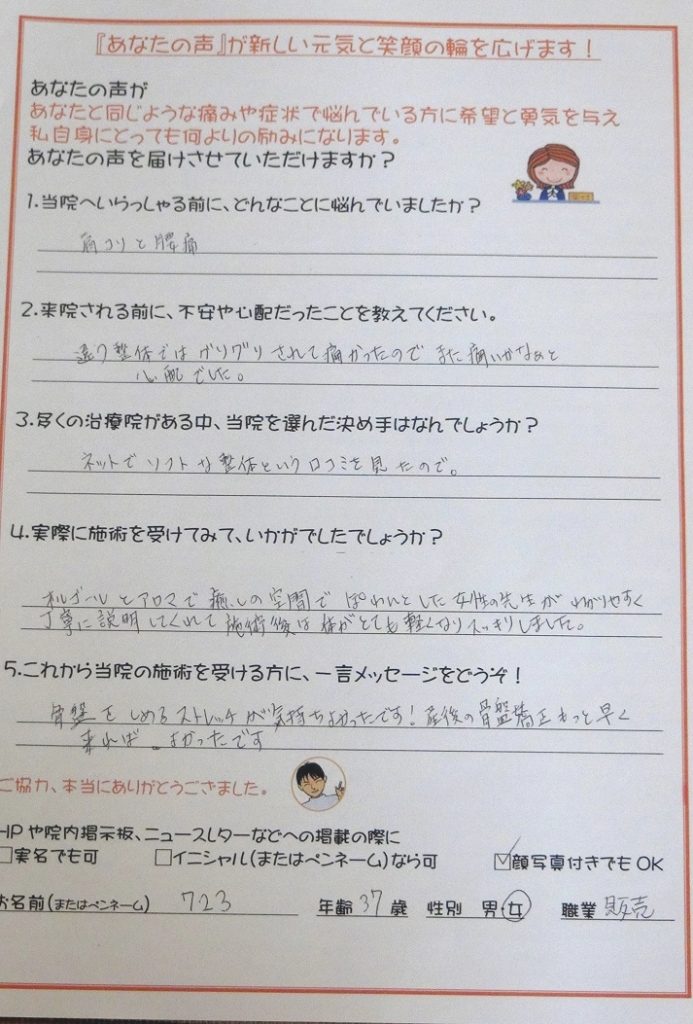 『あなたの声』が新しい元気と笑顔の輪を広げます！
あなたの声が
あなたと同じような痛みや症状で悩んでいる方に希望と勇気を与え
私自身にとっても何よりの励みになります。
あなたの声を届けさせていただけますか？
1.当院へいらっしゃる前に、どんなことに悩んでいましたか？
肩コリと腰痛
2.来院される前に、不安や心配だったことを教えてください。
違う整体ではグリグリされて痛かったので また痛いかなぁと
心配でした。
3.多くの治療院がある中、当院を選んだ決め手はなんでしょうか？
ネットでソフトな整体という口コミを見たので。
4.実際に施術を受けてみて、いかがでしたでしょうか？
オルゴールとアロマで癒しの空間で ぽわんとした女性の先生が わかりやすく
丁寧に説明してくれて 施術後は体がとても軽くなりスッキリしました。
5.これから当院の施術を受ける方に、一言メッセージをどうぞ！
骨盤をしめるストレッチが気持ちよかったです！産後の骨盤矯正もっと早く
来れば よかったです
ご協力、本当にありがとうございました。
HPや院内掲示板、ニュースレターなどへの掲載の際に
□実名でも可 □イニシャル(またはペンネーム)なら可 ☑顔写真付きでもOK
お名前(またはペンネーム) 723 年齢 37 歳 性別 男・女 職業 販売